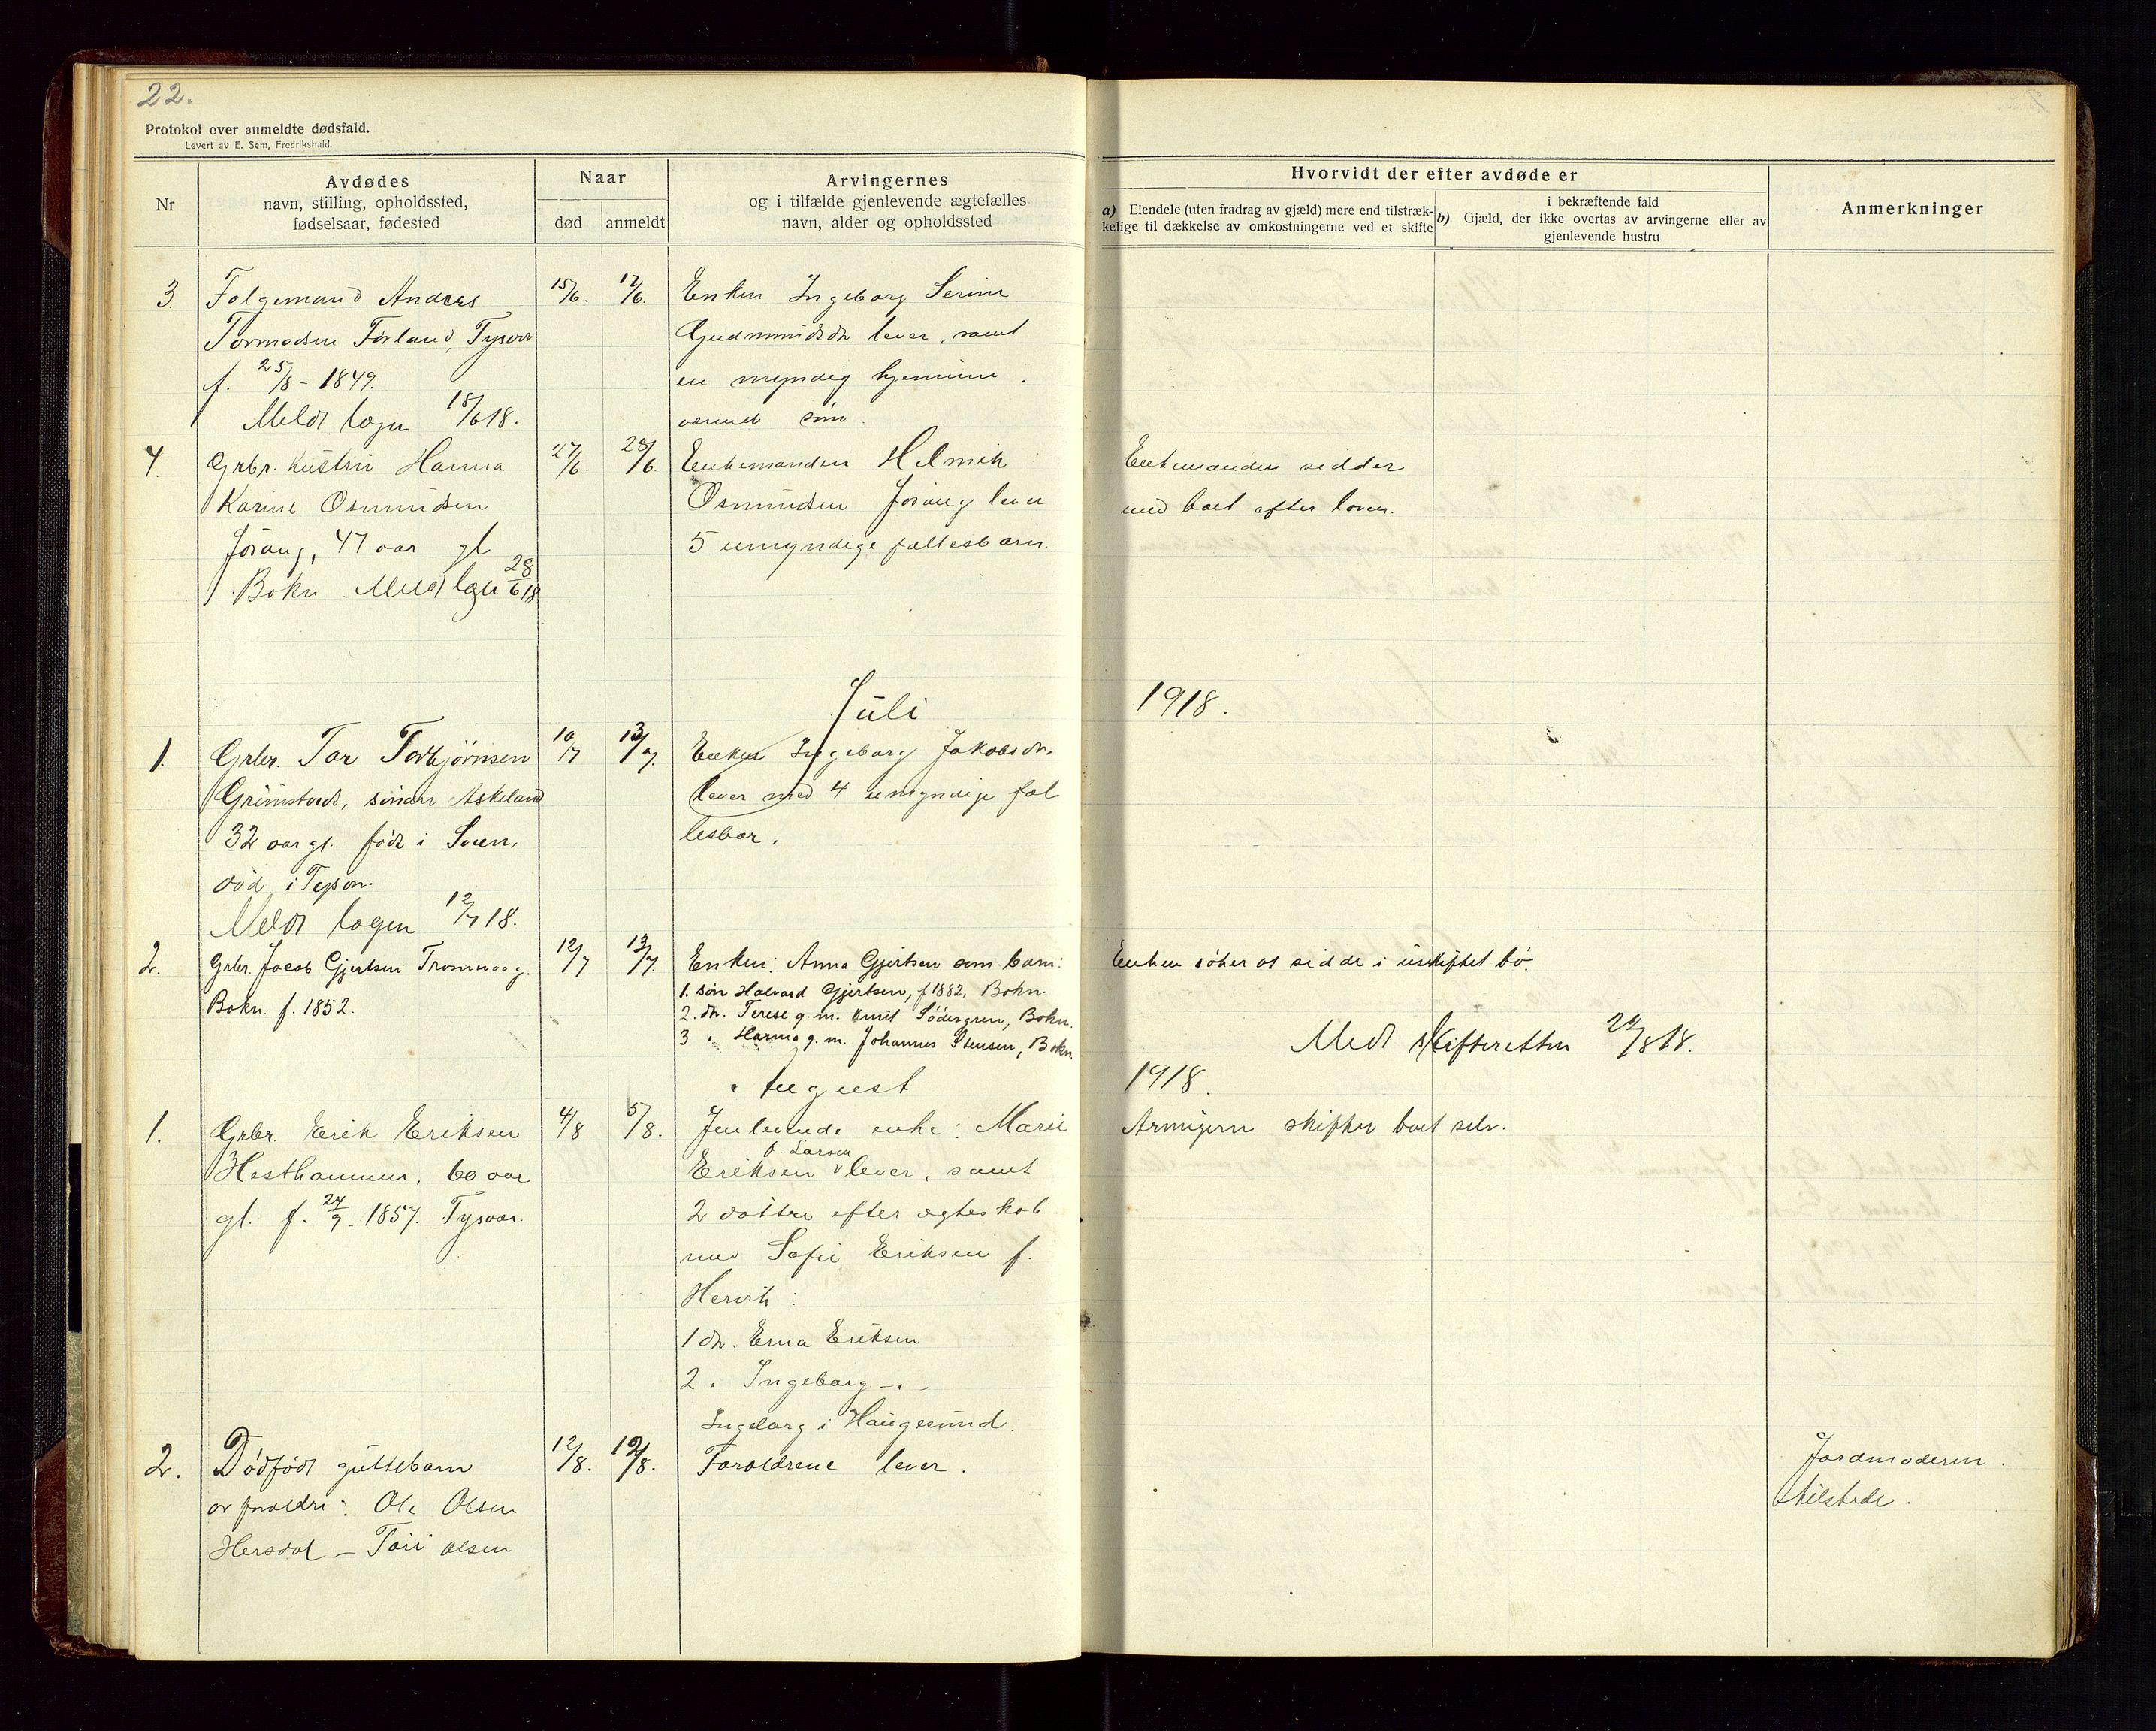 22.
Protokol over anmeldte dødsfald.
Levert av E. Sem, Fredrikshald.
Nr
Avdødes
navn, stilling, opholdssted,
fødselsaar, fødested
Naar
død
anmeldt
Arvingernes
og i tilfælde gjenlevende ægtefælles
navn, alder og opholdssted
Hvorvidt der efter avdøde er
a) Eiendele (uten fradrag av gjæld) mere end tilstræk-
kelige til dækkelse av omkostningerne ved et skifte
i bekræftende fald
b) Gjæld, der ikke overtas av arvingerne eller av
gjenlevende hustru
Anmerkninger
3. Folgemand Andreas
Tormodsen Førland, Tysvær
f. 25/8 - 1849.
Meldt logn 18/6 18.
15/6. 17/6.
Enken Ingeborg Serine
Gudmundsdtr lever, samt
en myndig hjemme
værende søn.
4. Grbr. Kustru Hanna
Karine Osmundsen
Jøsang, 47 aar gl
Bokn. Meldt logn 28/6 18
27/6. 28/6.
Enkemanden Helmik
Osmundsen Jøsang lever
5 umyndige fællesbarn.
Enkemanden sidder
med boet efter loven.
Juli
1918.
1. Grbr. Tor Torbjørnsen
Grimstvedt, søndre Askeland
32 aar gl. født i
død i Tysvær.
Meldt logen 12/7 18.
10/7 13/7.
Enken Ingeborg Jakobsdtr.
lever med 4 umyndige fæl
lesbar.
2. Grbr. Jacob Gjertsen
Bokn. f. 1852.
12/7 13/7.
Enken: Anna Gjertsen som barn:
1. søn Halvard Gjertsen, f 1882, Bokn.
2. dtr. Terese g. m. Knut Södergren, Bokn.
3 " Hanna g. m. Johannes Stensen, Bokn.
Enken søker at sidde i uskiftet bo.
Medt skifteretten 24/8 18.
August
1918.
1. Grbr. Erik Eriksen
Hesthammer, 60 aar
gl. f. 27/9. 1857. Tysvær.
4/8 5/8.
Jenlevende enke: Marie
f. Larsen
Eriksen lever, samt
2 døttre efter ægteskab
med Sofie Eriksen f.
Hervik:
1 dtr. Erna Eriksen
2 " Ingeborg - " -
Ingeborg i Haugesund.
Arvingern skifter boet selv.
2. Dødfødt guttebarn
av forældre: Ole Olsen
Hersdal - Tori Olsen
12/8. 12/8.
Forældrene lever.
Jordmoderen
tilstede.